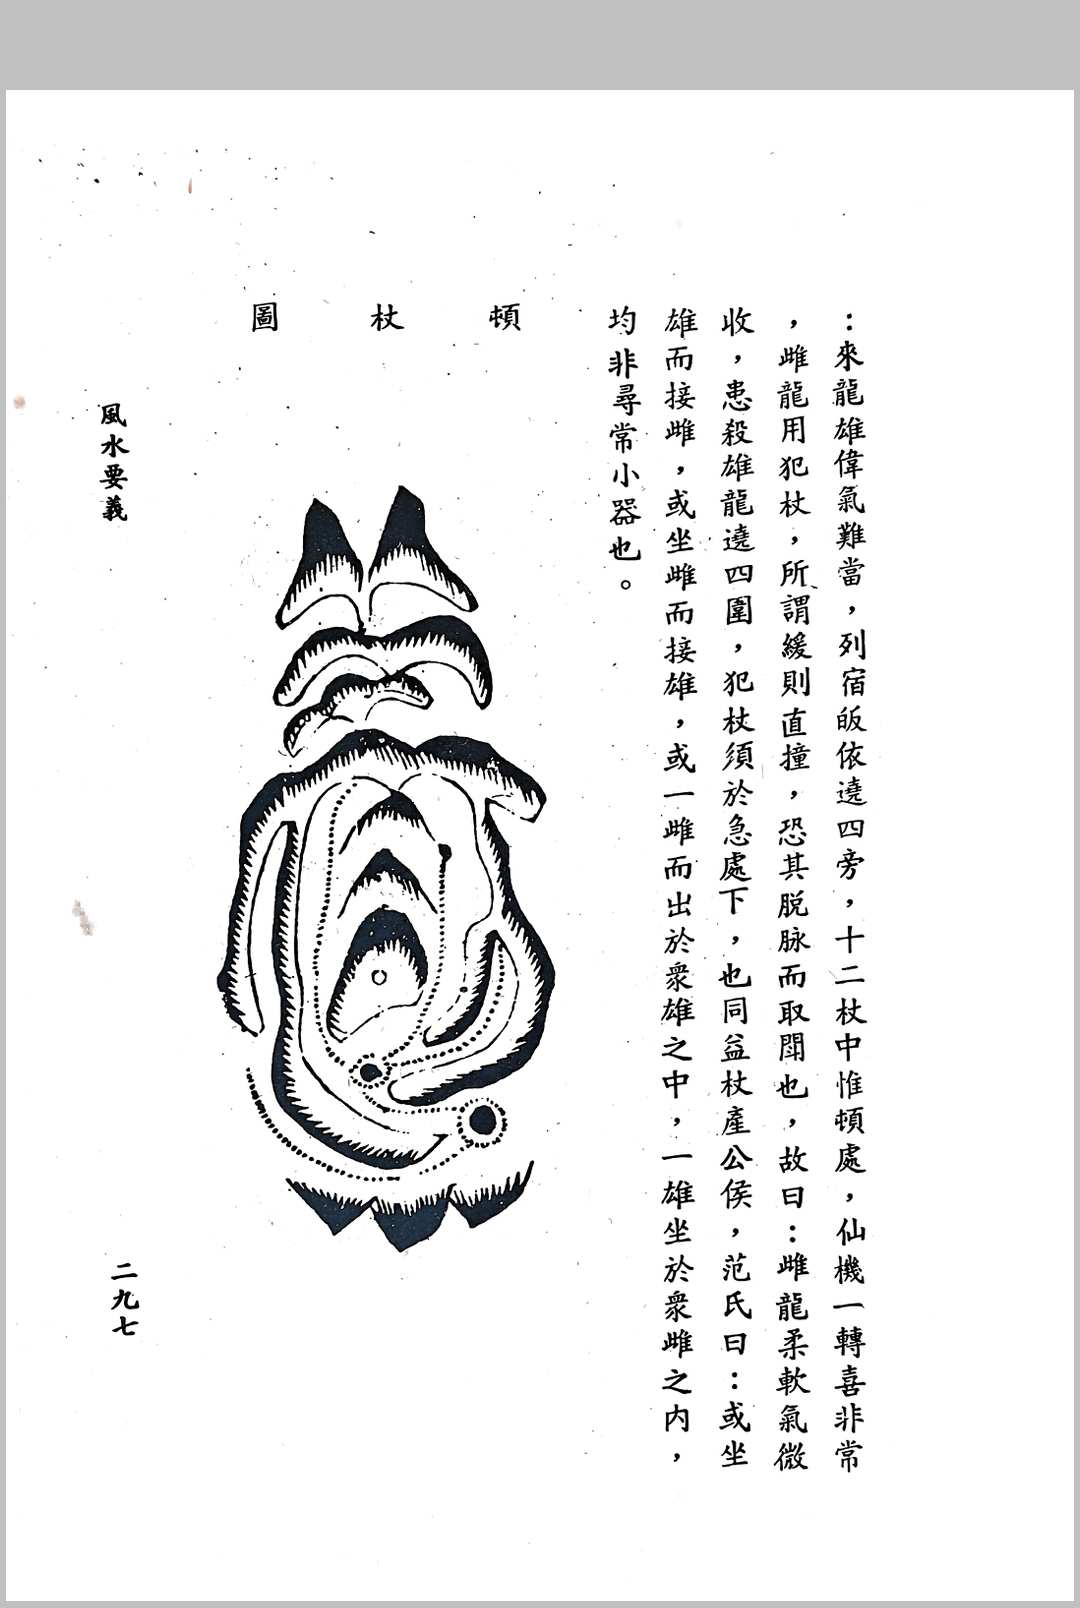 ：來龍雄偉氣難當，列宿皈依遶四旁，十二杖中惟頓處，仙機一轉喜非常
，雌龍用犯杖，所謂緩則直撞，恐其脫脉而取閗也，故曰：雌龍柔軟氣微
收，患殺雄龍遶四圍，犯杖須於急處下，也同益杖產公侯，范氏曰：或坐
雄而接雌，或坐雌而接雄，或一雌而出於衆雄之中，一雄坐於衆雌之內，
均非尋常小器也。
頓杖圖
風水要義
二九七